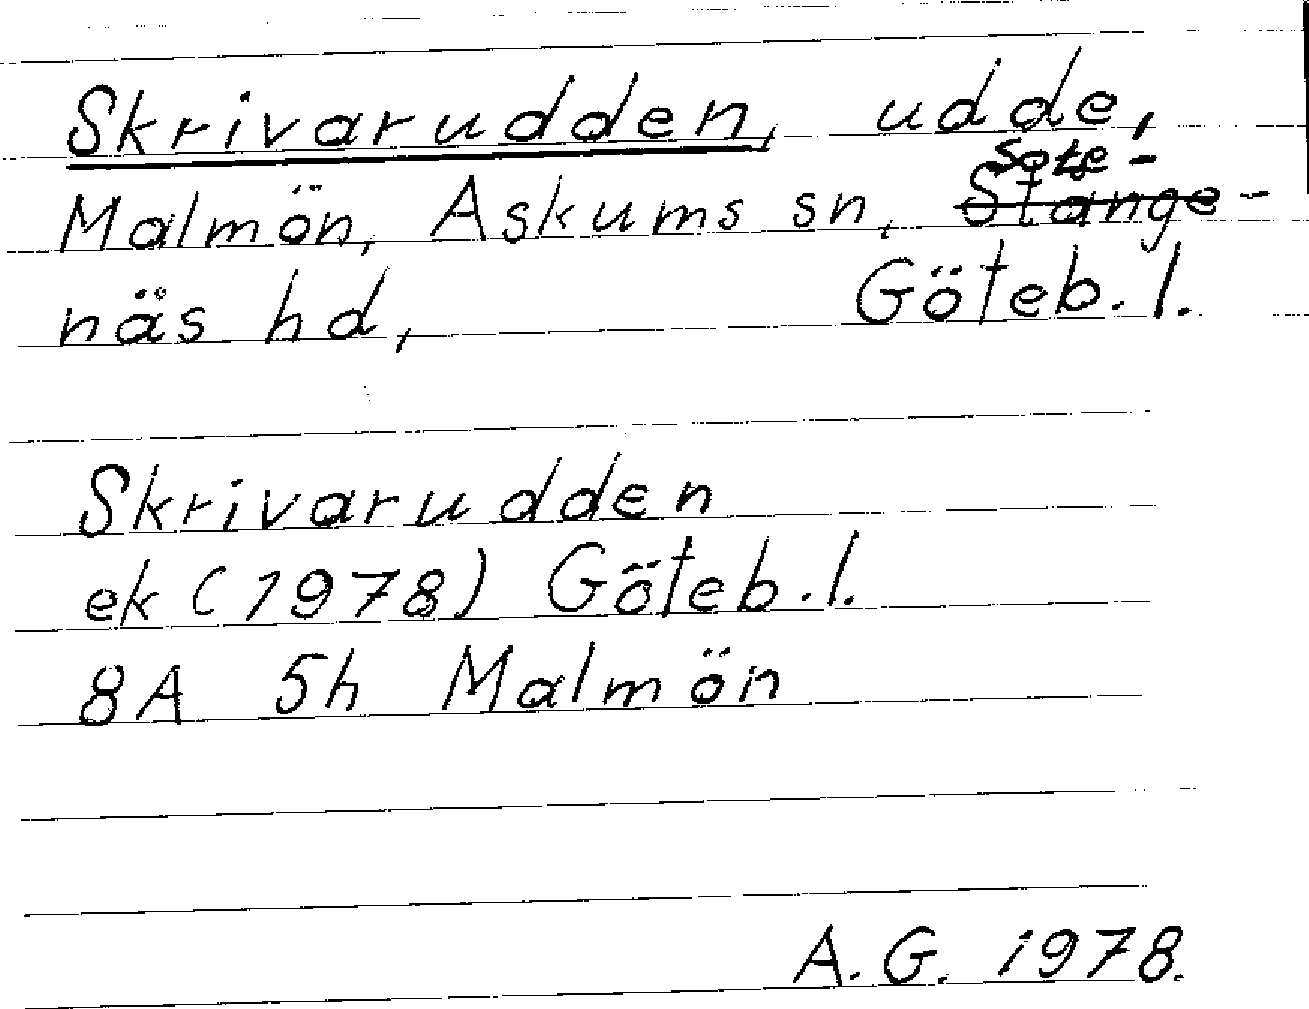 Skrivarudden, udde,
Sote-
Malmön, Askums sn, Stange-
näs hd, Göteb. l.
Skrivarudden
ek (1978) Göteb. l.
8A 5h Malmön
A. G. 1978.